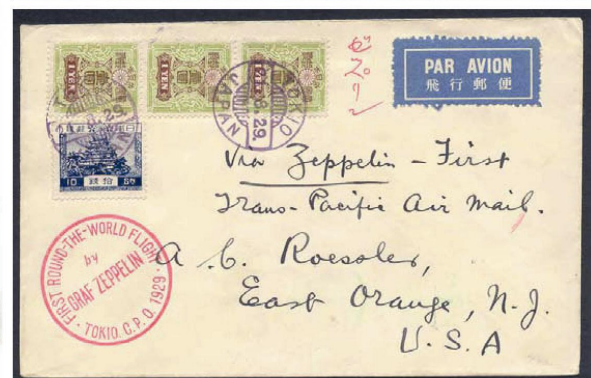 1 YEN
1 YEN
1 YEN
TOKIO
JAPAN
8.29.
8.29
10 拾銭 銭
PAR AVION
飛行郵便
Via Zeppelin - First
Trans-Pacific Air Mail.
A. C. Roessler,
East Orange, N.J.
U.S.A
FIRST ROUND-THE-WORLD FLIGHT
by
GRAF ZEPPELIN
TOKIO. C. P. O. 1929